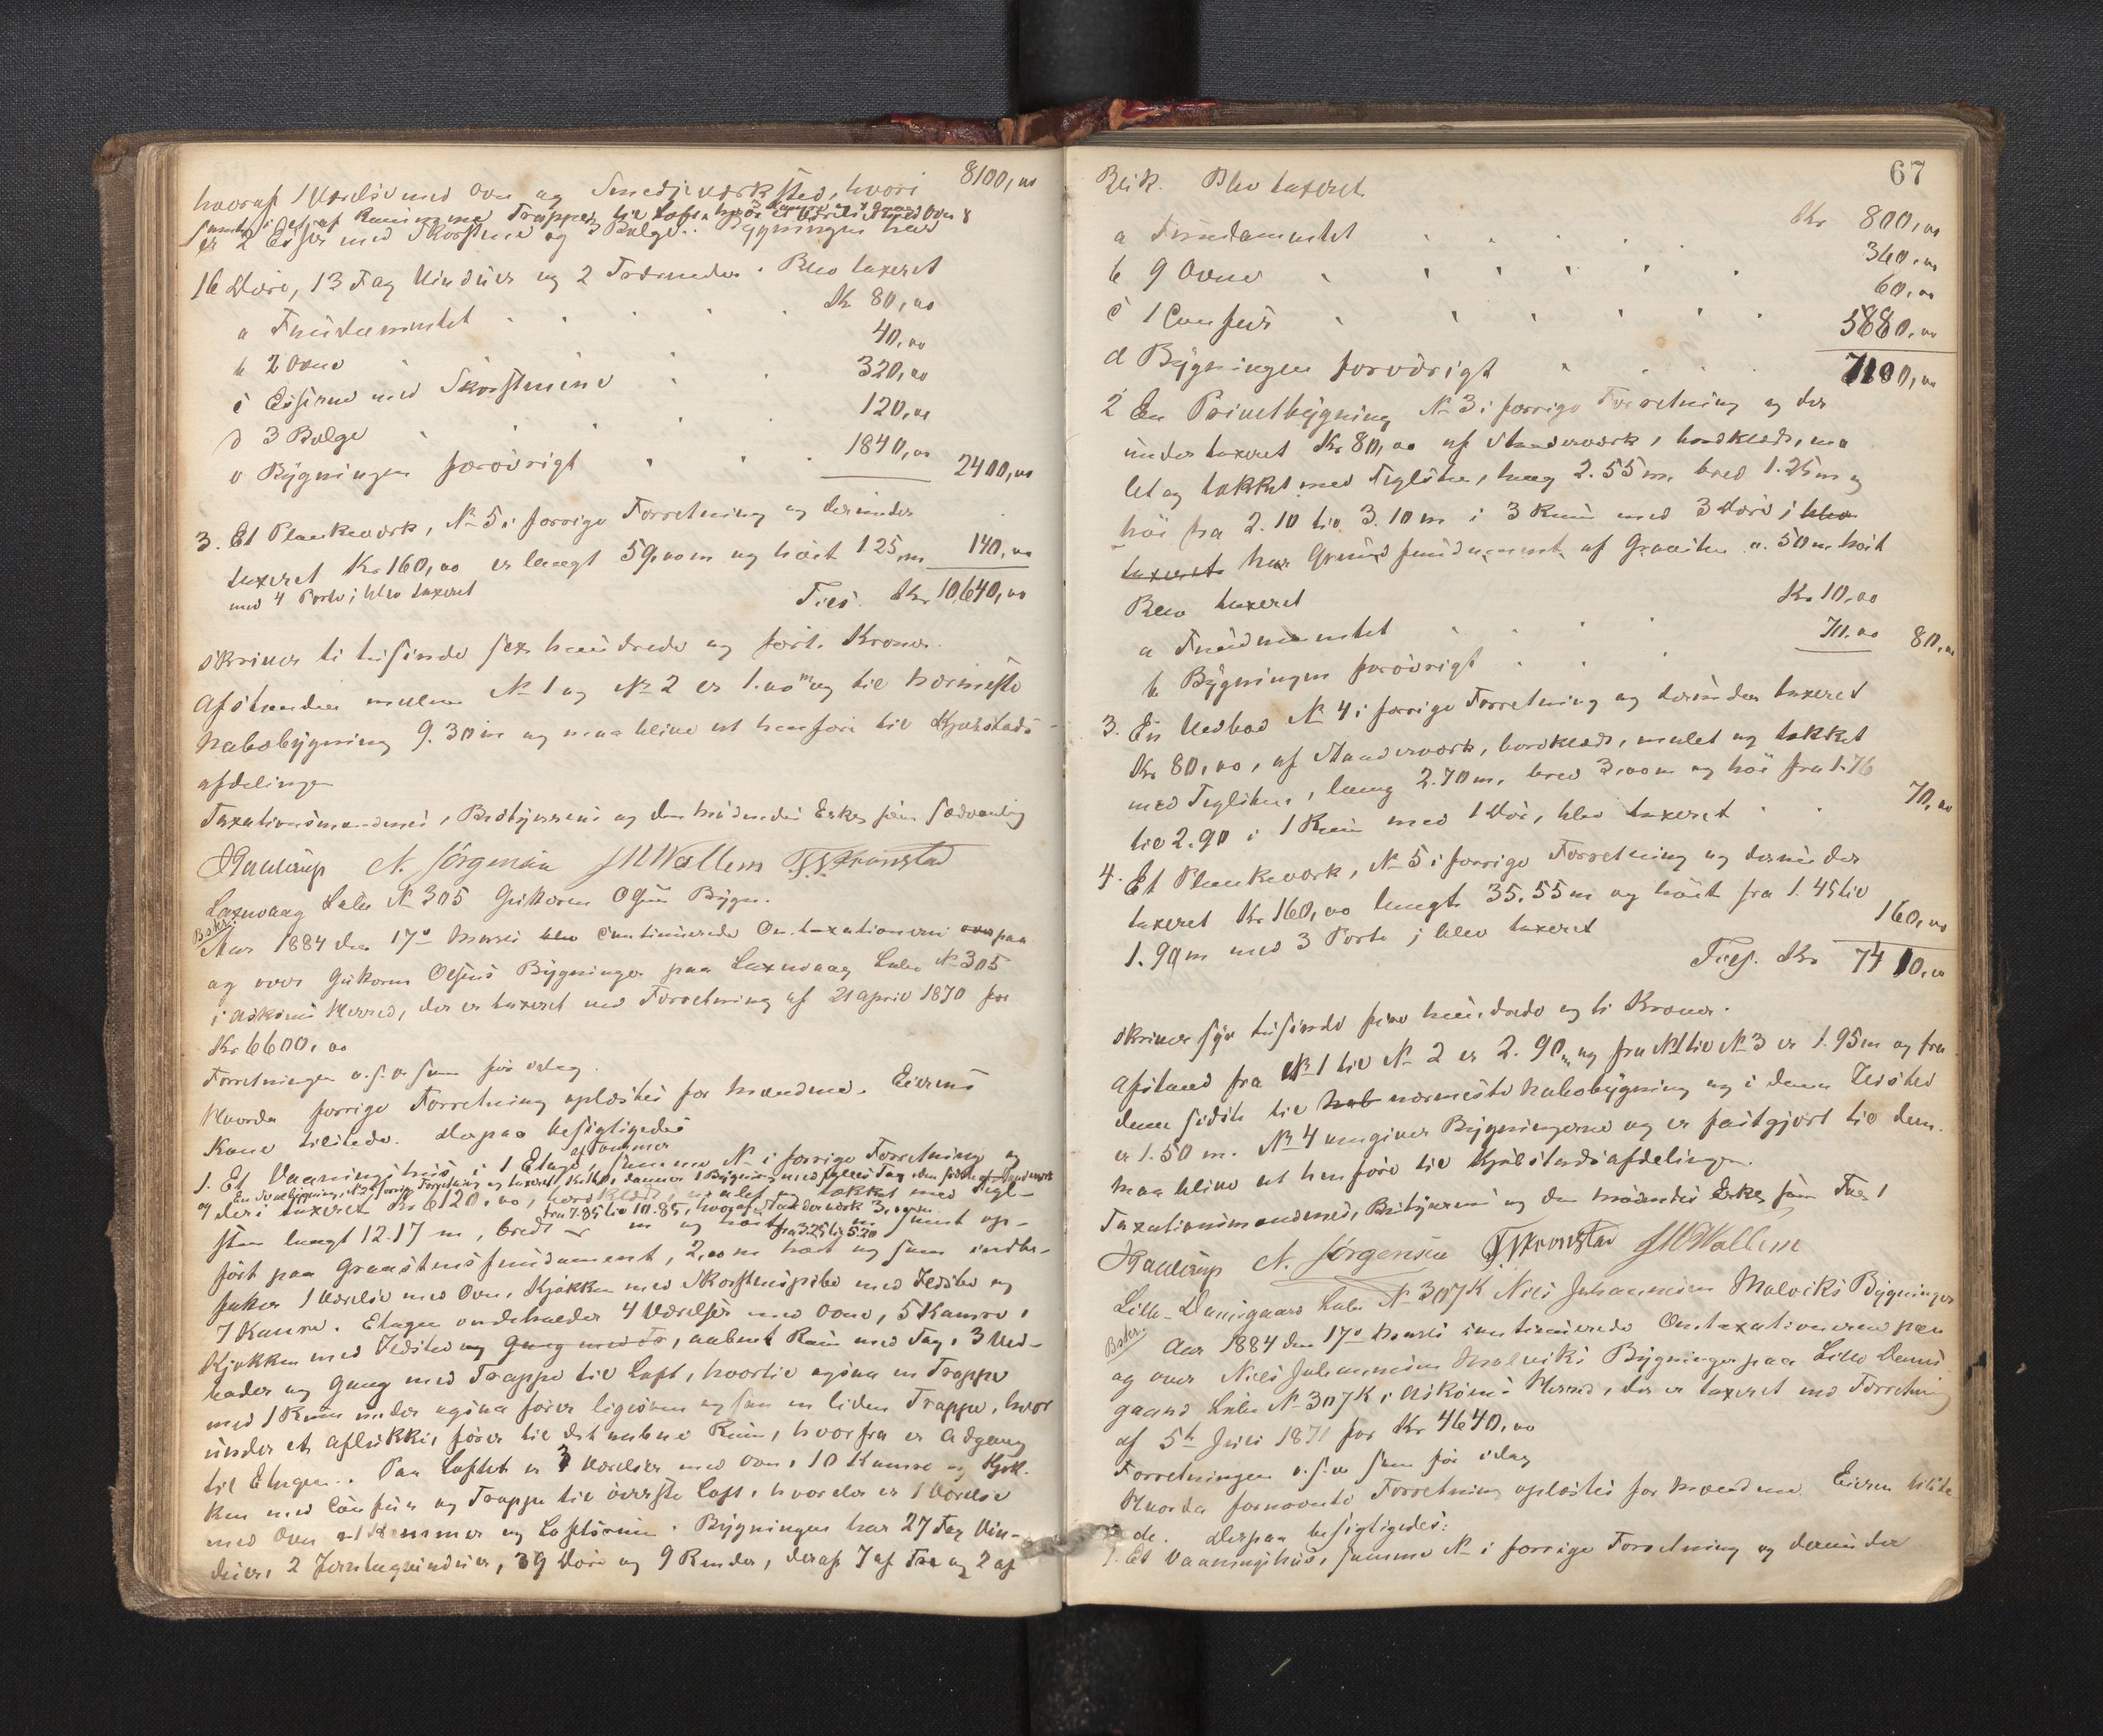 8100,00
hvoraf 1 Værelse med Ovn og Smedjeværksted, hvori
samt i et af Rummene Trapper til Loft, hvor et Værelse med Ovn &
er 2 Esser med Skorstene og 3 Bælge. Bygningen har
16 Døre, 13 Fag Vinduer og 2 Tagrender. Blev taxeret
a Fundamentet Kr 80,00
b 2 Ovne 40,00
c Esserne med Skorstene 320,00
d 3 Bælge 120,00
e Bygningen forøvrigt 1840,00 2400,00
3. Et Plankeværk, No 5 i forrige Forretning og derunder
taxeret Kr 160,00 er langt 59,00m og høit 1 25m 140,00
med 4 Porte; blev taxeret
Ties. Kr 10,640,00
skriver ti tusinde sex hundrede og førti Kroner.
Afstanden mellem No 1 og No 2 er 1.00 m og til nærmeste
Nabobygning 9.30m og maa blive at henføre til Kjøbstads-
afdelingen
Taxationsmændenes, Bestyrerens og den mødendes Ed som sædvanlig
N. Jørgensen JMWallem Kronstad
Laxevaag Løbe No 305 Guttorm Olsens Bygn.
Beskr.
Aar 1884 den 17de Marts blev continuerede Omtaxationerne over paa
og over Guttorm Olsens Bygninger paa Laxevaag Løbe No 305
i Askøens Herred, der er taxeret ved Forretning af 21 April 1870 for
Kr 6600,00
Forretningen o.s.v. som før idag.
Hvorda forrige Forretning oplæstes for Mændene. Eierens
Kone tilstede. Derpaa besigtigedes
af Tømmer
1. Et Vaaningshus i 1 Etage, samme No i forrige Forretning og
deri taxeret Kr 6120,00, bordklædt, malet og tækket med Tegl-
fra 7.85 til 10.85, hvoraf Standerværk 3,00m
sten langt 12.17 m, bredt m og høit fra 3.25 til 5.20 m samt op-
ført paa Graastensfundament, 2,00m høit og som indbe-
fatter 1 Værelse med Ovn, Kjøkken med Skorstenspibe med Ildsted og
7 Kamre. Etagen indeholder 4 Værelser med Ovne, 5 Kamre,
Kjøkken med Ildsted og Gang med Tr, aabent Rum med Tag, 3 Ved-
boder og Gang med Trappe til Loft, hvortil ogsaa en Trappe
med 1 Rum under ogsaa fører ligesom og saa en liden Trappe, hvor
under et Aflukke, fører til det aabne Rum, hvorfra er Adgang
til Etagen. Paa Loftet er 3 Værelser med Ovn, 10 Kamre og Kjøk-
ken med Comfur og Trappe til øverste Loft, hvor der er 1 Værelse
med Ovn 1 Kammer og Loftsrum. Bygningen har 27 Fag Vin-
duer, 2 Jerntagvinduer, 39 Døre og 9 Render, deraf 7 af Træ og 2 af
67
Blik. Blev taxeret
a Fundamentet Kr 800,00
b 9 Ovne 360,00
c 1 Comfur 60,00
d Bygningen forøvrigt 5880,00
7100,00
2 En Privetbygning No 3 i forrige Forretning og der
under taxeret Kr 80,00 af Standerværk, bordklædt, ma
let og tækket med Teglsten, lang 2.55m, bred 1.25m og
høi fra 2.10 til 3.10m i 3 Rum med 3 Døre; blev
taxeret har Grundfundament af Graasten 0.50m høit
Blev taxeret
a Fundamentet Kr 10,00
b Bygningen forøvrigt 70.00 80,00
3. En Vedbod No 4 i forrige Forretning og derunder taxeret
Kr 80,00, af Standerværk, bordklædt, malet og tækket
med Teglsten, lang 2.70m, bred 3,00m og høi fra 1.76
til 2.90 i 1 Rum med 1 Dør, blev taxeret 70,00
4. Et Plankeværk, No 5 i forrige Forretning og derunder
taxeret Kr 160,00 langt 35.55m og høit fra 1.45 til
1.90m med 3 Porte; blev taxeret 160,00
Ties. Kr 7410,00
skriver syv tusinde fire hundrede og ti Kroner.
Afstand fra No 1 til No 2 er 2.90m og fra No 1 til No 3 er 1.95m og fra
denne sidste til nab nærmeste Nabobygning og i denne Ildsted
er 1.50 m. No 4 omgiver Bygningerne og er fastgjort til dem.
Maa blive at henføre til Kjøbstadsafdelingen.
Taxationsmændenes, Bestyrerens og den mødendes Ed som
N. Jørgensen Kronstad JMWallem
Lille-Damsgaard Løbe No 307K Niels Johannesen Malviks Bygninger
Beskr.
Aar 1884 den 17de Marts continuerede Omtaxationerne paa
og over Niels Johannesen Malviks Bygninger paa Lille Dams
gaard Løbe No 307K i Askøens Herred, der er taxeret ved Forretning
af 5te Juli 1871 for Kr 4640,00
Forretningen o.s.v. som før idag
Hvorda fornævnte Forretning oplæstes for Mændene. Eieren tilste
de. Derpaa besigtigedes:
1. Et Vaaningshus, samme No i forrige Forretning og derunder